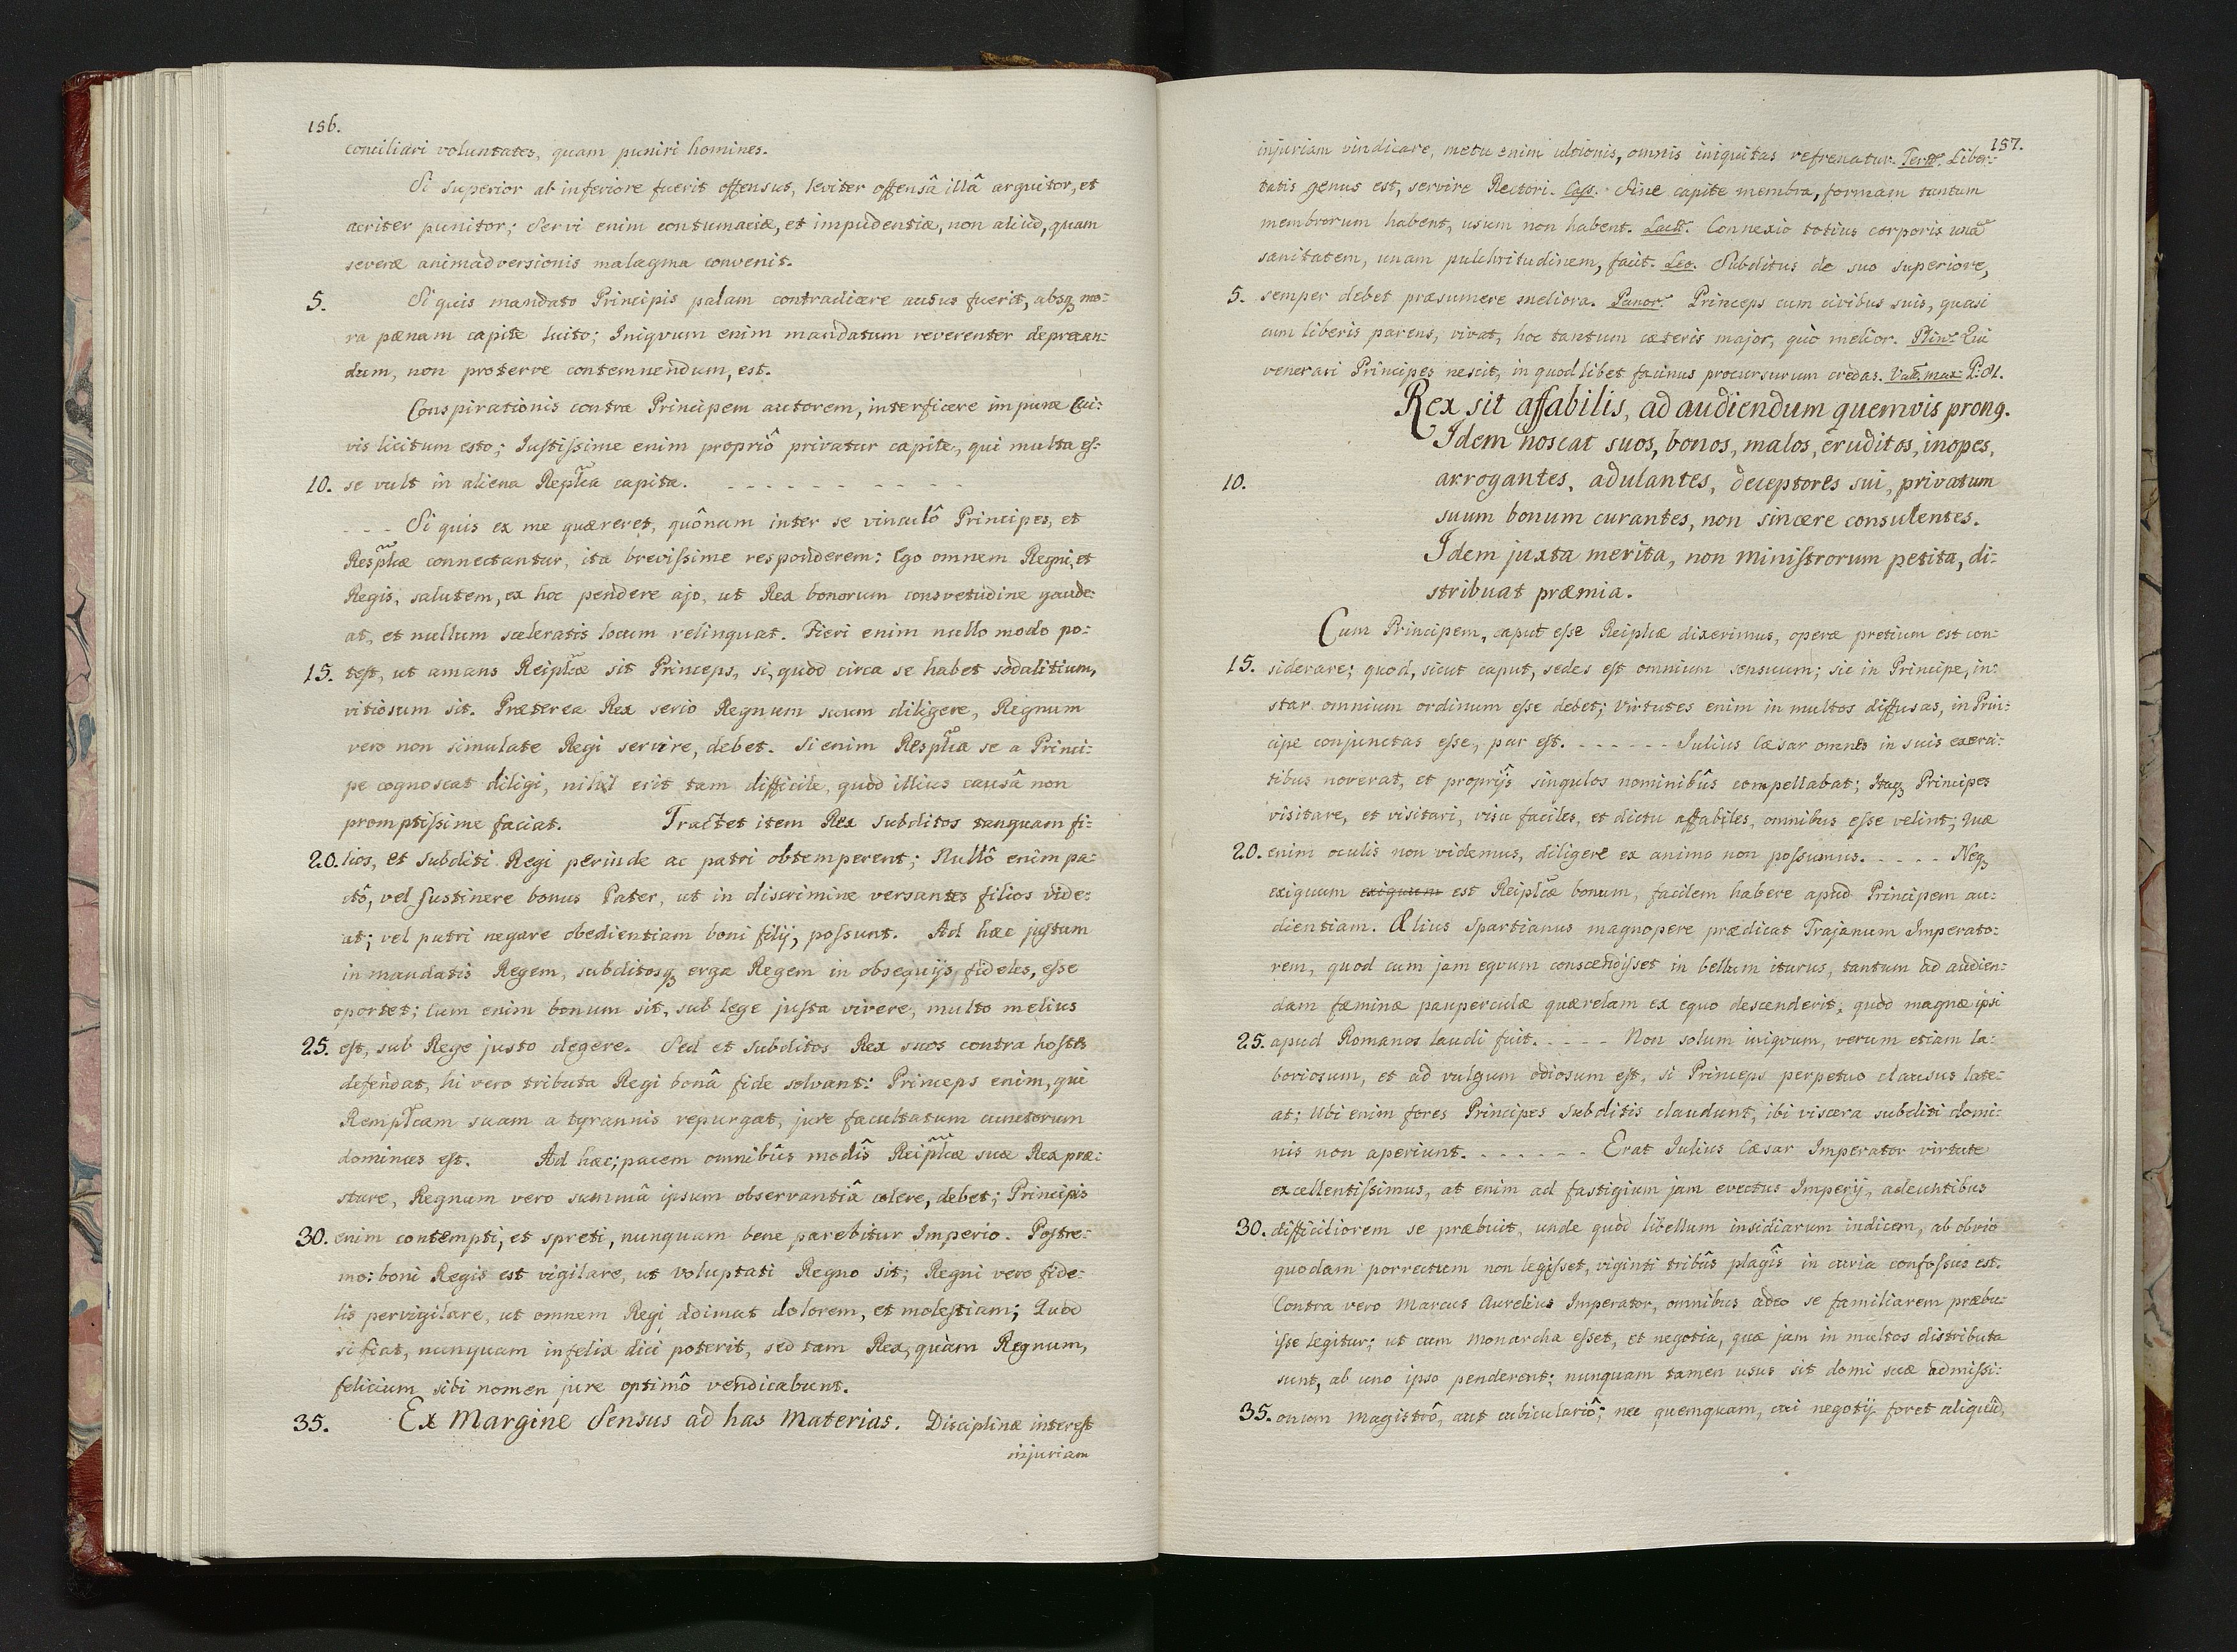 156.
conciliari voluntates, quam puniri homines.
Si superior ab inferiore fuerit offensus, leviter offensâ illâ arguitor, et
acriter punitor; Servi enim contumaciæ, et impudentiæ, non aliud, quam
severæ animadversionis malagma convenit.
5. Si quis mandato Principis palam contradicere ausus fuerit, absq mo:
ra pænam capite luito; Iniqvum enim mandatum reverenter deprecan:
dum, non proterve contemnendum, est.
Conspirationis contra Principem autorem, interficere impune Cui:
vis licitum esto; Justissime enim propriô privatur capite, qui multa es:
10. se vult in aliena Replca capita. - - - - - - - - - -
- - Si quis ex me quæreret, quônam inter se vinculô Principes, et
Resplcæ connectantur, ita brevissime responderem: Ego omnem Regni, et
Regis, salutem, ex hoc pendere ajo, ut Rex bonorum consvetudine gaude:
at, et nullum sceleratis locum relinquat. Fieri enim nullo modo po:
15. test, ut amans Reiplcæ sit Princeps, si, quod circa se habet sodalitium,
vitiosum sit. Præterea Rex serio Regnum suum diligere, Regnum
vero non simulate Regi servire, debet. Si enim Resplca se a Princi:
pe cognoscat diligi, nihil erit tam difficile, quod illius causâ non
promptissime faciat. Tractet item Rex subditos tanquam fi:
20. lios, et subditi Regi perinde ac patri obtemperent; Nullô enim pa:
ctô, vel sustinere bonus Pater, ut in discrimine versantes filios vide:
at; vel patri negare obedientiam boni filij, possunt. Ad hæc justum
in mandatis Regem, subditosq erga Regem in obsequijs fideles, esse
oportet; Cum enim bonum sit, sub lege justa vivere, multo melius
25. est, sub Rege justo degere. Sed et subditos Rex suos contra hostes
defendat, hi vero tributa Regi bonâ fide solvant: Princeps enim, qui
Remplcam suam a tyrannis repurgat, jure facultatum cunctorum
dominus est. Ad hæc; pacem omnibûs modîs Reiplcæ suæ Rex præ:
stare, Regnum vero summâ ipsum observantiâ colere, debet; Principis
30. enim contempti, et spreti, nunquam bene parebitur Imperio. Postre:
mo: boni Regis est vigilare, ut voluptati Regno sit; Regni vero fide:
lis pervigilare, ut omnem Regi adimat dolorem, et molestiam; Quod
si fiat, nunquam infelix dici poterit, sed tam Rex, quàm Regnum,
felicium sibi nomen jure optimô vendicabunt.
35. Ex Margine Sensus ad has Materias. Disciplinæ interest
injuriam
157.
injuriam vindicare, metu enim ultionis, omnis iniquitas refrenatur. Tert. Liber:
tatis genus est, servire Rectori. Cass. Sine capite membra, formam tantum
membrorum habent, usum non habent. Lact. Connexio totius corporis unã
sanitatem, unam pulchritudinem, facit. Leo. Subditus de suo superiore,
5. semper debet præsumere meliora. Panor. Princeps cum civibus suis, quasi
cum liberis parens, vivat, hoc tantum cæteris major, quò melior. Plin. Qui
venerari Principes nescit, in quodlibet facinus procursurum credas. Val. max. P. 81.
Rex sit affabilis, ad audiendum quemvis pronq.
Idem noscat suos, bonos, malos, eruditos, inopes,
10. arrogantes, adulantes, deceptores sui, privatum
suum bonum curantes, non sincere consulentes.
Idem juxta merita, non ministrorum petita, di:
stribuat præmia.
Cum Principem, caput esse Reiplcæ dixerimus, operæ pretium est con:
15. siderare; quod, sicut caput, sedes est omnium sensuum; sic in Principe, in:
star omnium ordinum esse debet; Virtutes enim in multos diffusas, in Prin:
cipe conjunctas esse, par est. - - - - - - Julius Cæsar omnes in suis exerci:
tibus noverat, et proprijs singulos nominibûs compellabat; Itaq Principes
visitare, et visitari, visu faciles, et dictu affabiles, omnibus esse velint; Quæ
20. enim oculis non videmus, diligere ex animo non possumus. - - - - - Neq
exiguum exiguum est Reiplcæ bonum, facilem habere apud Principem au:
dientiam. Ælius Spartianus magnopere prædicat Trajanum Imperato:
rem, quod cum jam eqvum conscendisset in bellum iturus, tantum ad audien:
dam fæminæ pauperculæ quærelam ex equo descenderit; quod magnæ ipsi
25. apud Romanos laudi fuit. - - - - Non solum iniqvum, verum etiam la:
boriosum, et ad vulgum odiosum est, si Princeps perpetuo clausus late:
at; Ubi enim fores Principes subditis claudunt, ibi viscera subditi domi:
nis non aperiunt. - - - - - - Erat Julius Cæsar Imperator virtute
excellentissimus, at enim ad fastigium jam evectus Imperij, adeuntibus
30. difficiliorem se præbuit, unde quòd libellum insidiarum indicem, ab obvio
quodam porrectum non legisset, viginti tribûs plagîs in curia confossus est.
Contra vero Marcus Aurelius Imperator, omnibus adeo se familiarem præbu:
isse legitur; ut cum Monarcha esset, et negotia, quæ jam in multos distributa
sunt, ab uno ipso penderent; nunquam tamen usus sit domi suæ admissi:
35. onum magistrô, aut cubiculariô; nec quemquam, cui negotij foret aliquid,